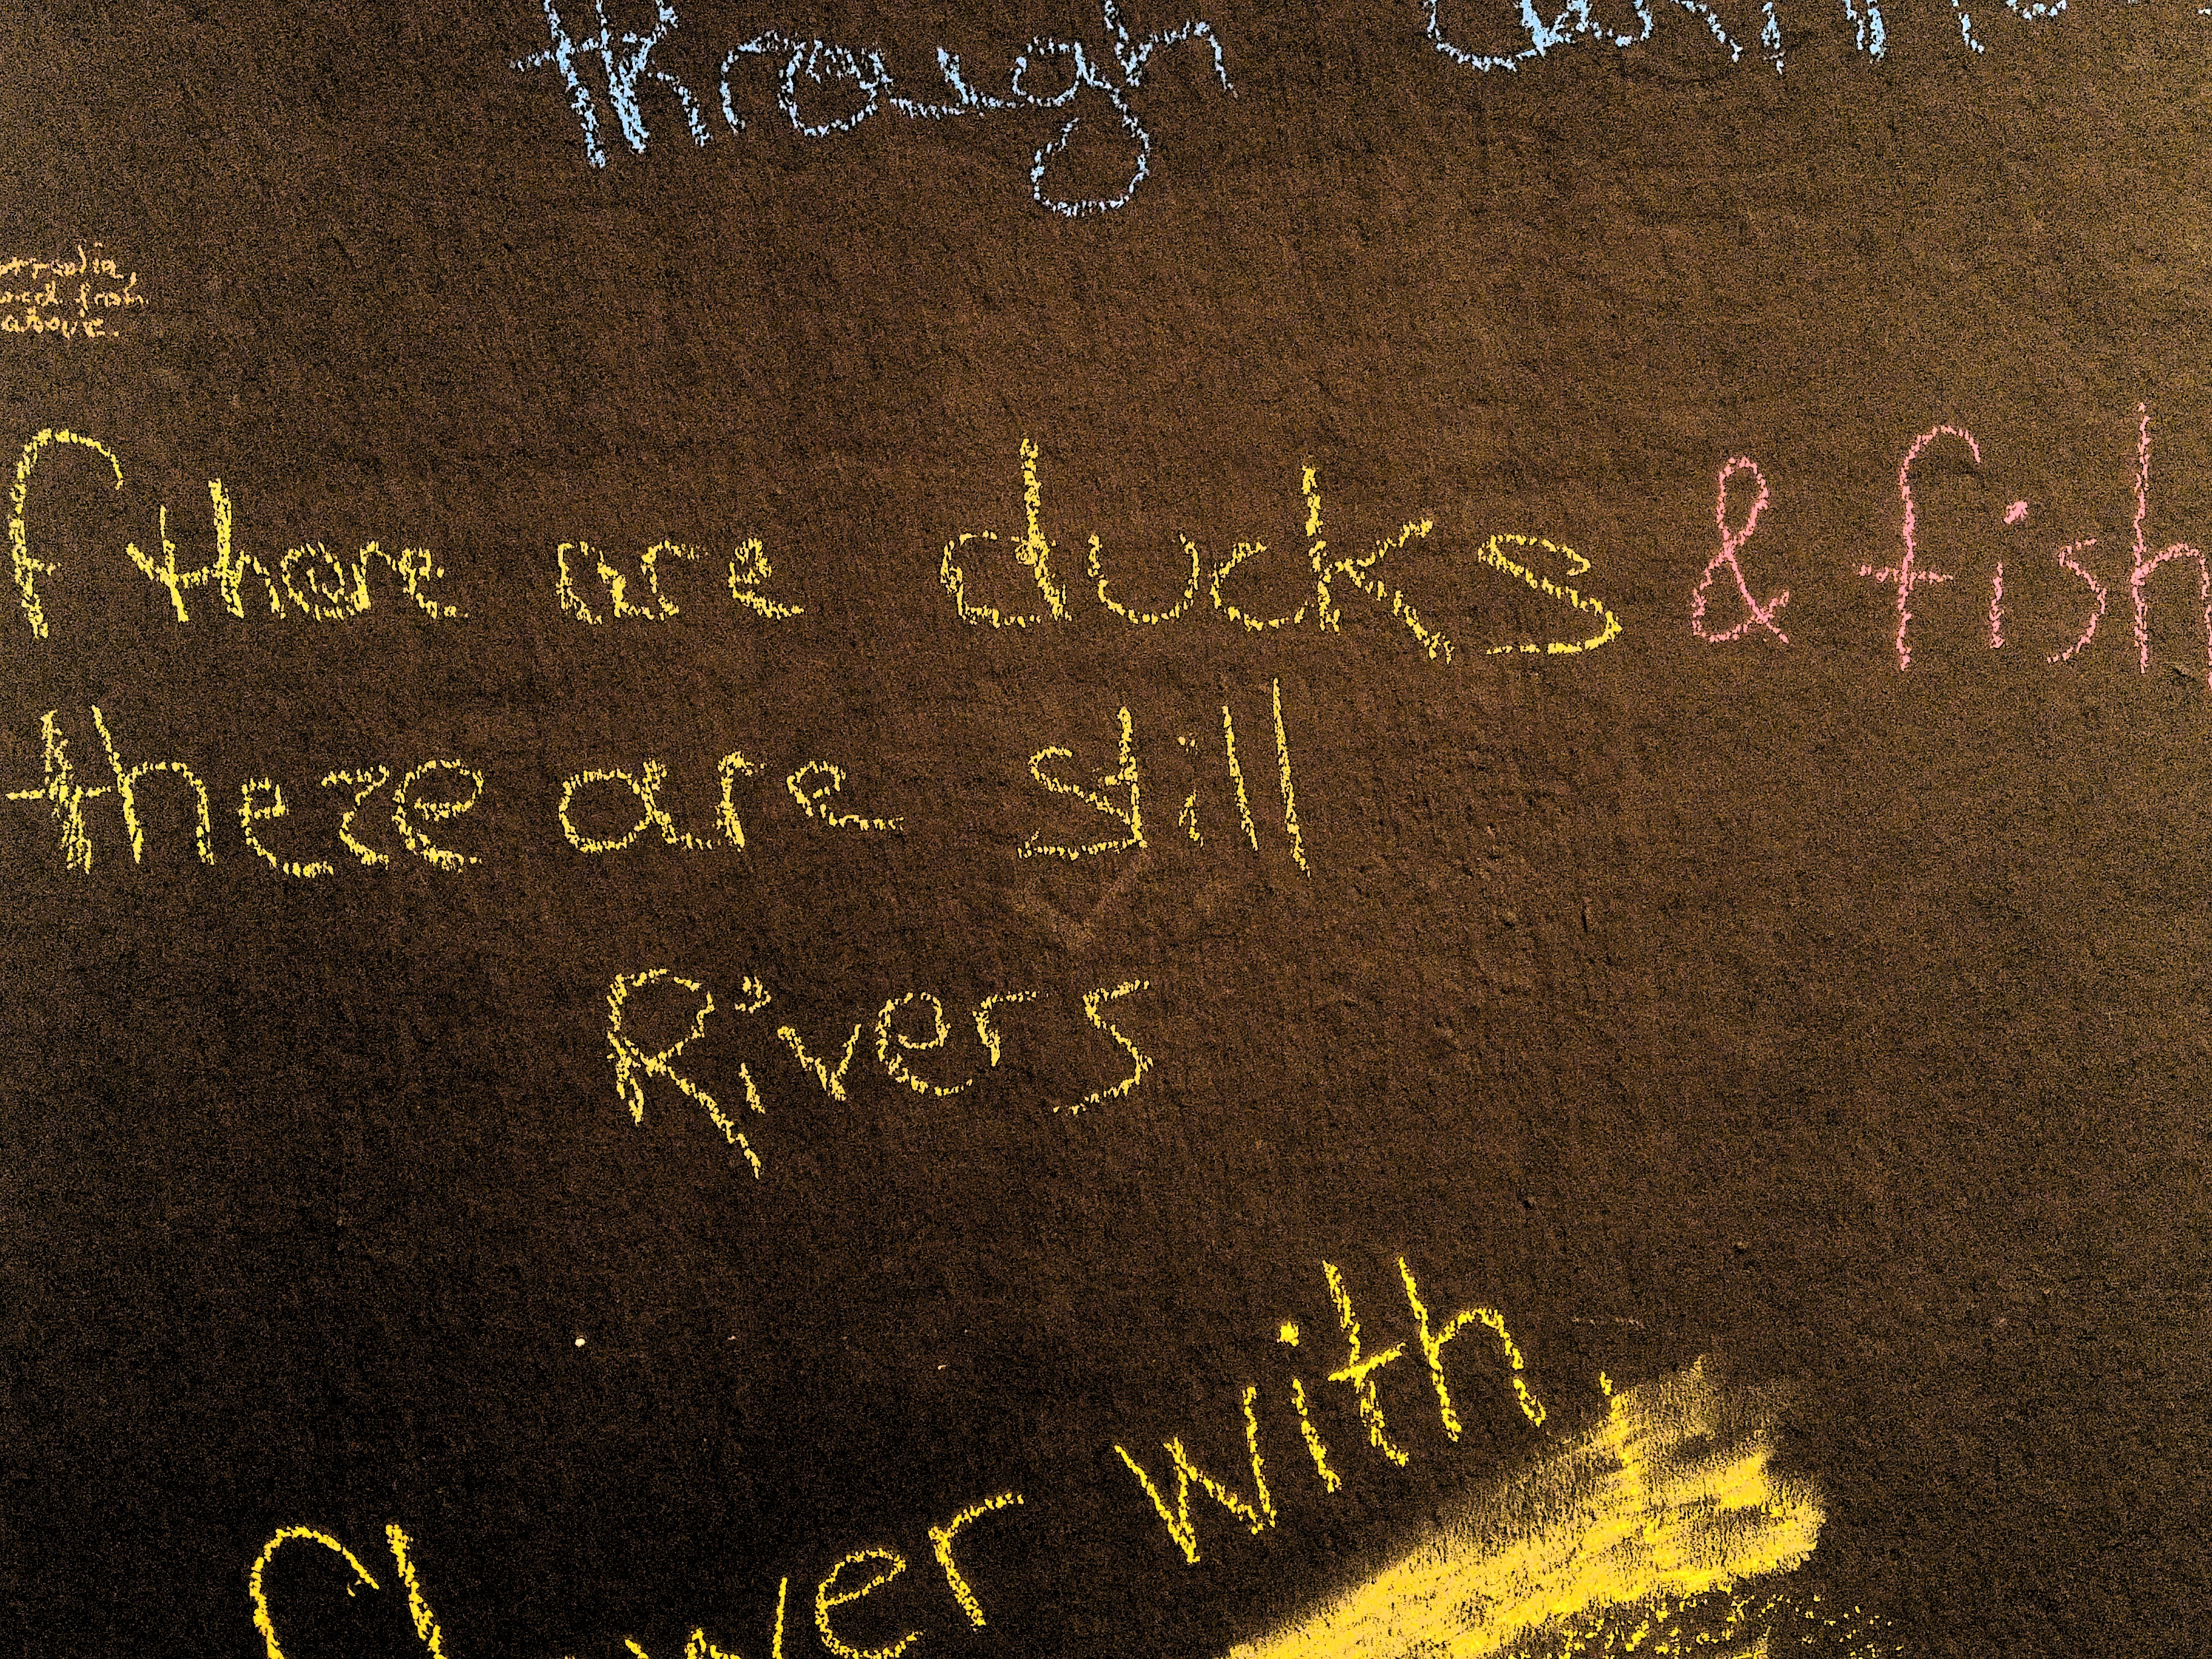 through
from
above.
f there are ducks & fish
there are still
Rivers
flower with